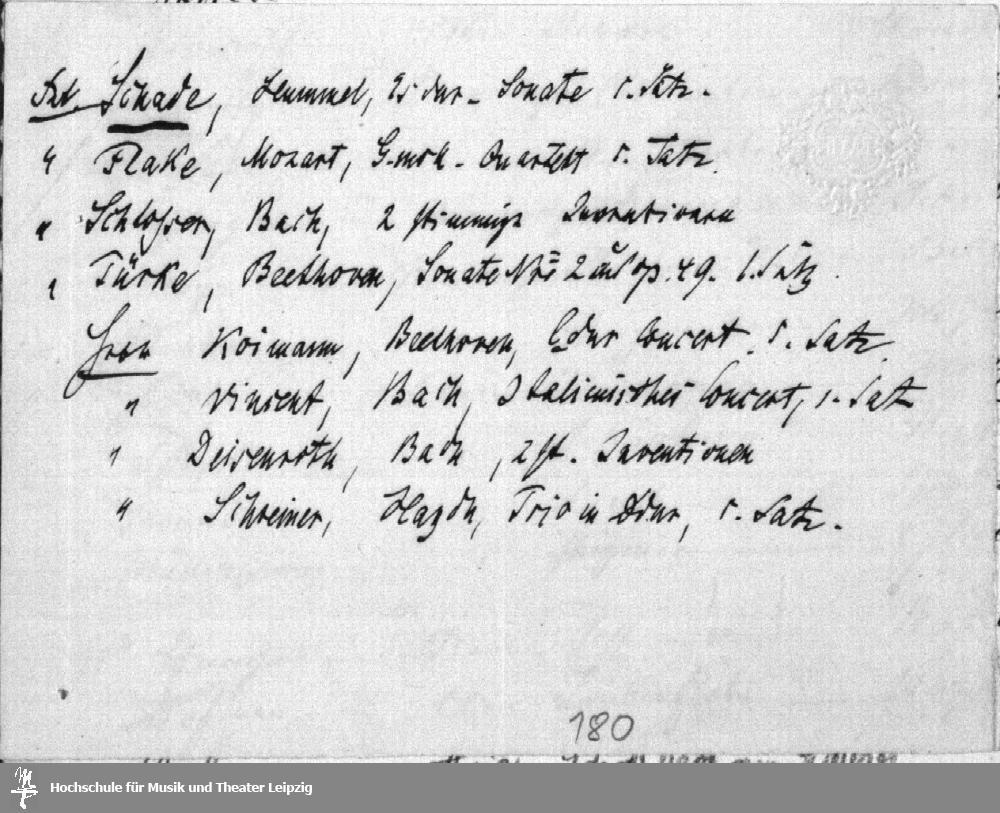 Frl. Schade, Hummel, Es dur-Sonate 1. Satz.
" Flake, Mozart, G-moll-Quartett 1. Satz.
" Schlosser, Bach, 2 stimmige Inventionen
" Türke, Beethoven, Sonate Nr. 2 aus op. 49. 1. Satz.
Herr Beethoven, Cdur Concert. 1. Satz.
" Vincent, Bach, Italienisches Concert, 1. Satz
" Deisenroth, Bach, 2 st. Inventionen
" Schreiner, Haydn, Trio in Ddur, 1. Satz.
180
Hochschule für Musik und Theater Leipzig